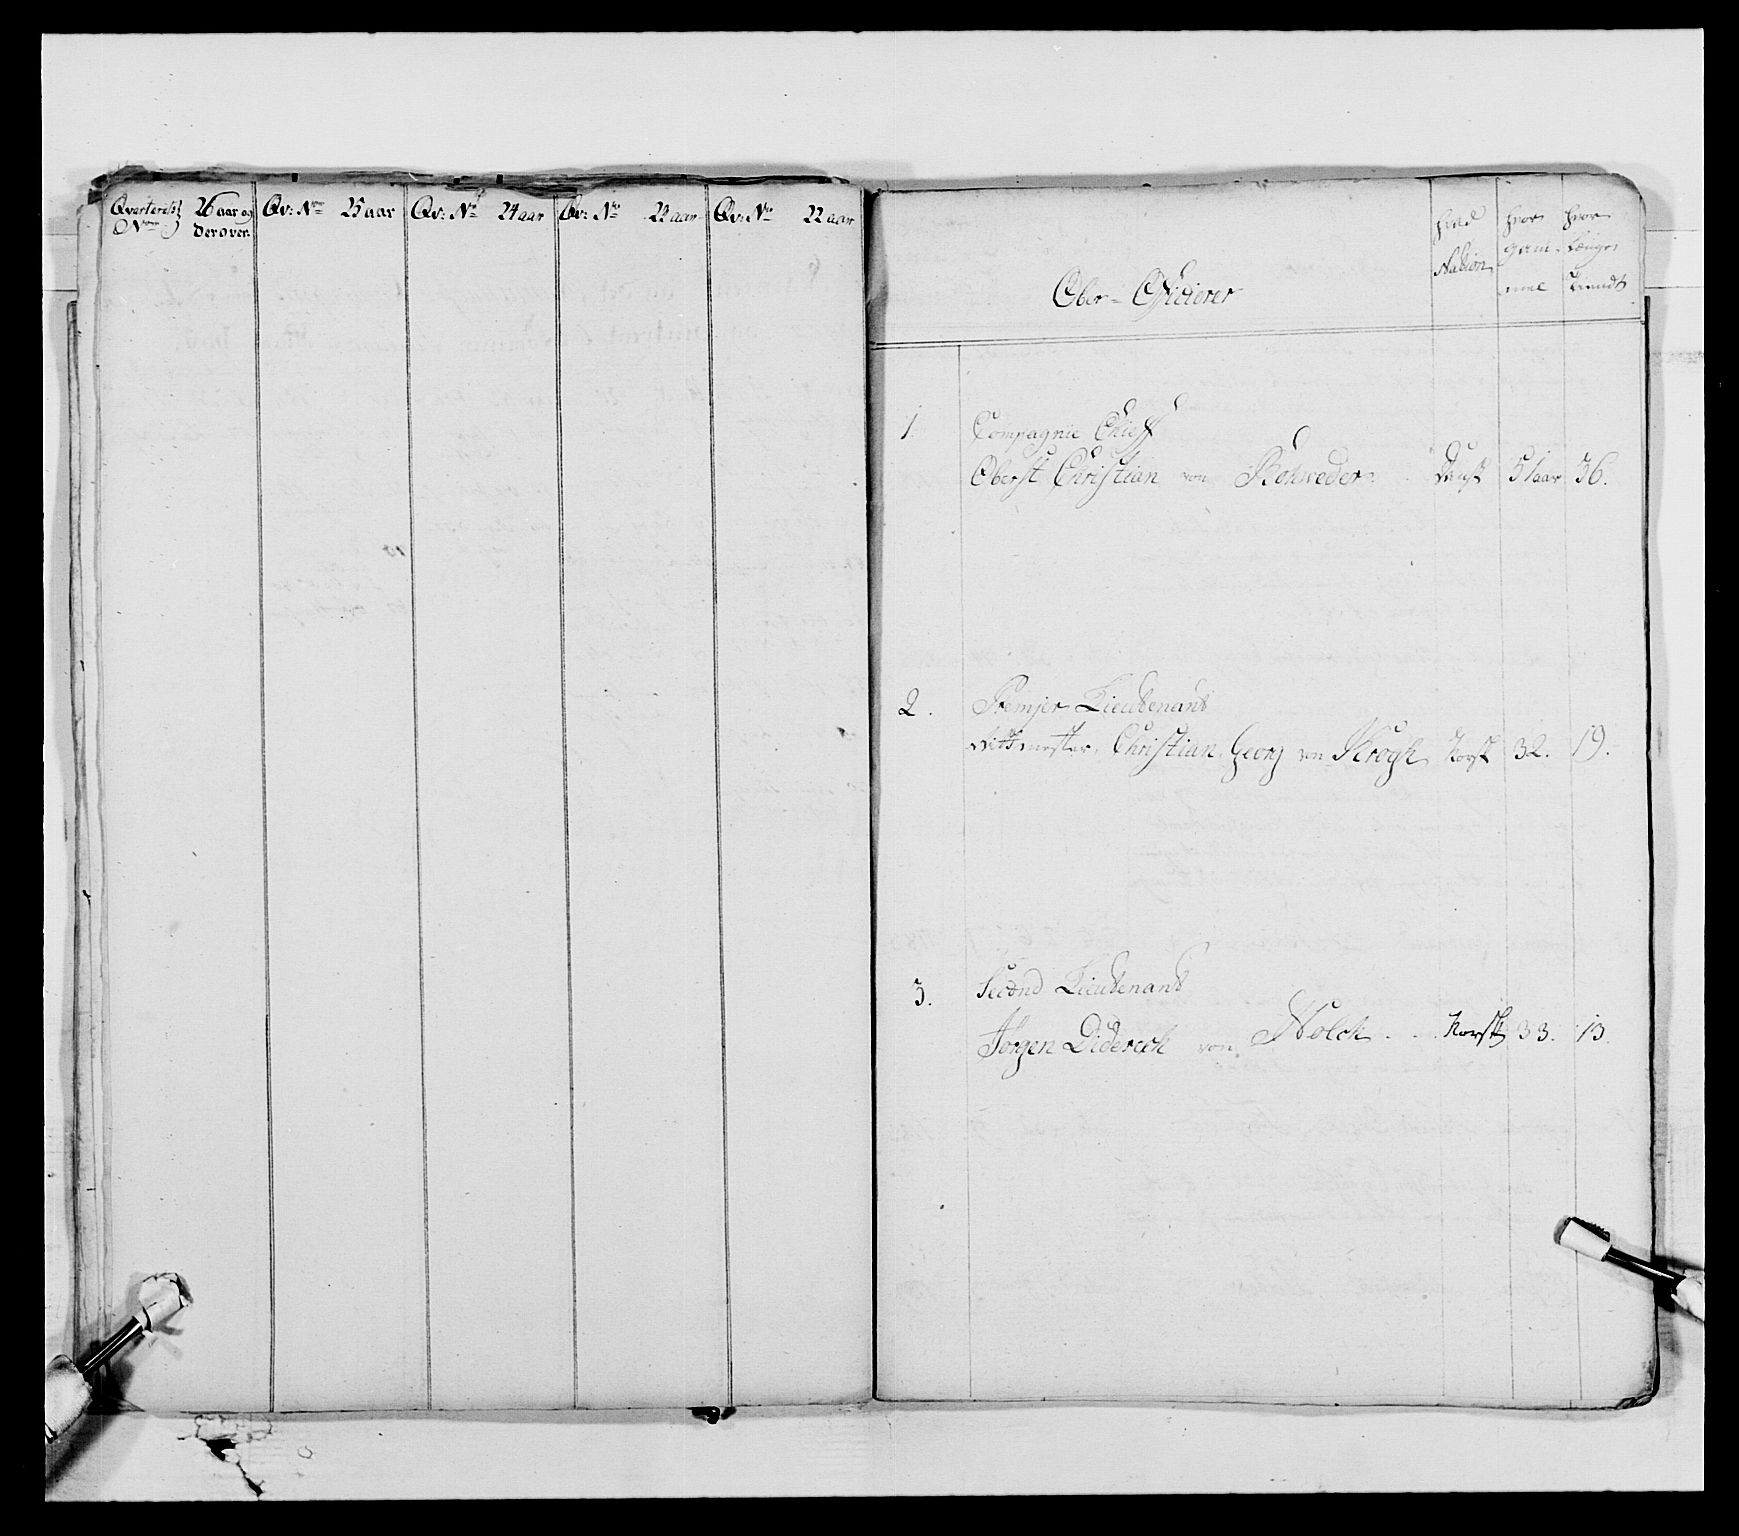 Qvarteret 26 aar og
Nro derover.
Qv: Nro 25 aar
Qv: Nro 24 aar
Qv: Nro 23 aar
Qv: Nro 22 aar
Ober-Officierer
hvad
Nation
hvor
gam-
mel
hvor
længe
tiendt
1. Compagnie Chieff
Oberst Christian von Rohweder. Dansk 51 aar 36.
2. Premjer Lieutenant
Rittmester, Christian Georg von Krogh Norsk 32. 19.
3. Second Lieutenant
Jørgen Diderich von Holck. Norsk 33. 13.